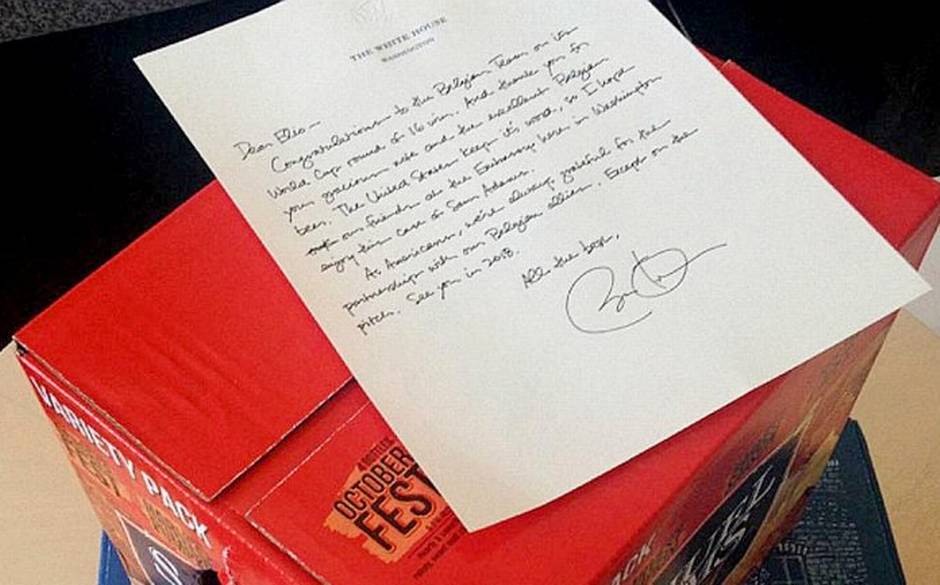 THE WHITE HOUSE
WASHINGTON
Dear Elio—
Congratulations to the Belgian Team on its
World Cup round of 16 win. And thank you for
your gracious note and the excellent Belgian
beer. The United States keeps it's word, so I hope
our friends at the Embassy here in Washington
enjoy this case of Sam Adams.
As Americans, we're always grateful for the
partnership with our Belgian allies. Except on the
pitch. See you in 2018.
All the best,
VARIETY PACK
OCTOBER
FEST